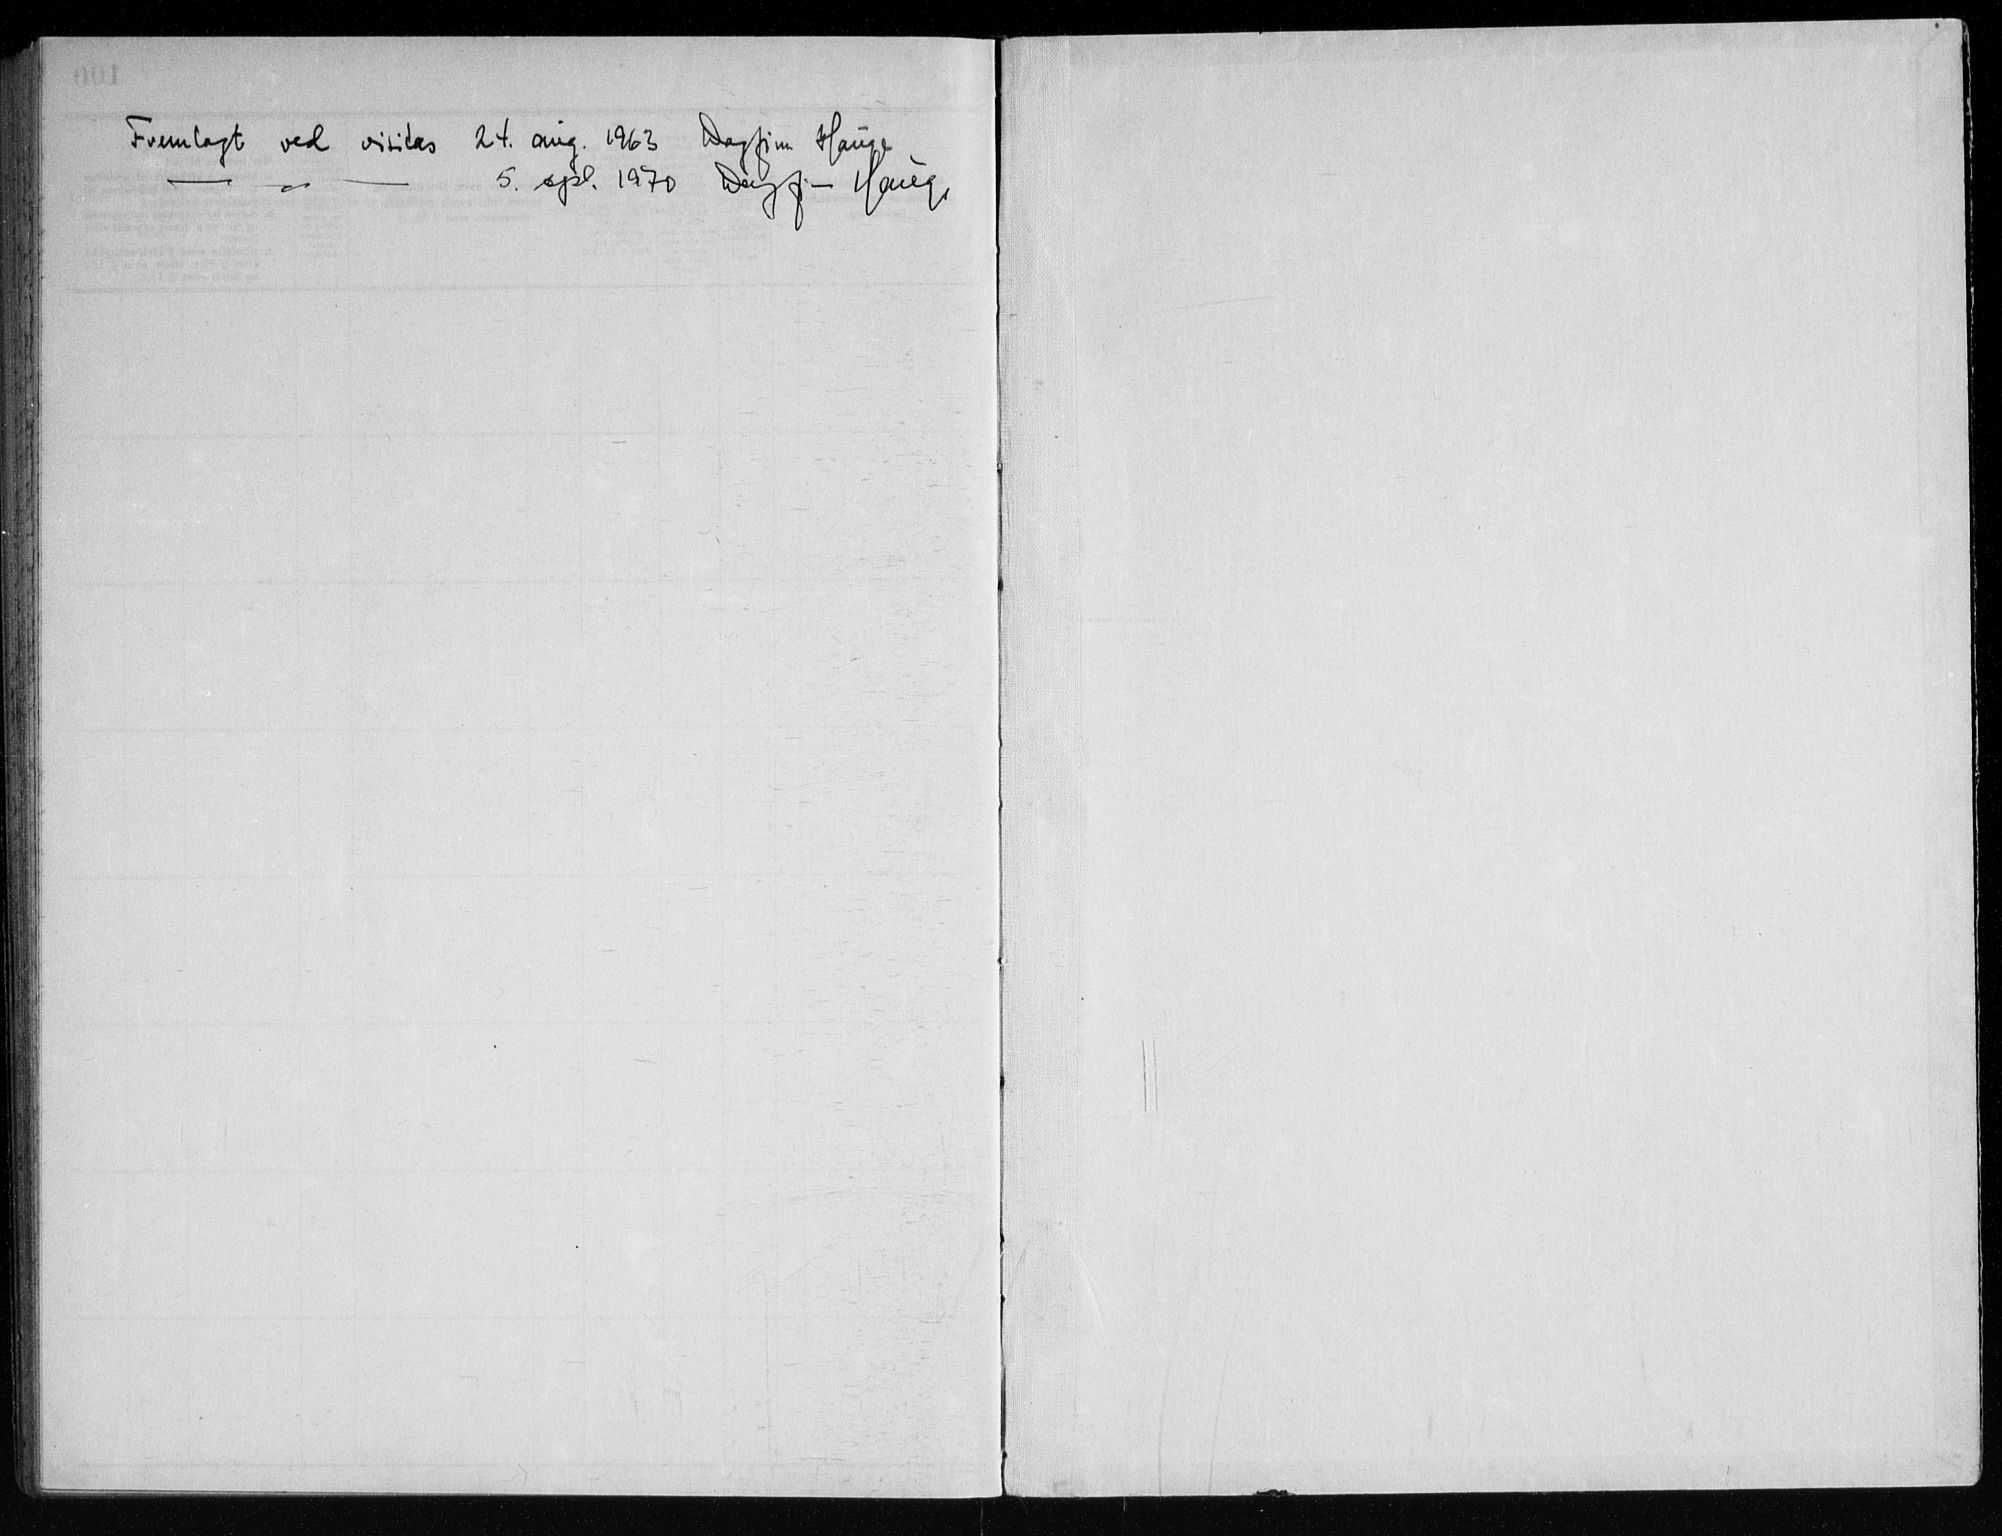 Fremlagt ved visitas 24. aug. 1963 Dagfinn Hauge
— " — 5. sept. 1970 Dagfinn Hauge